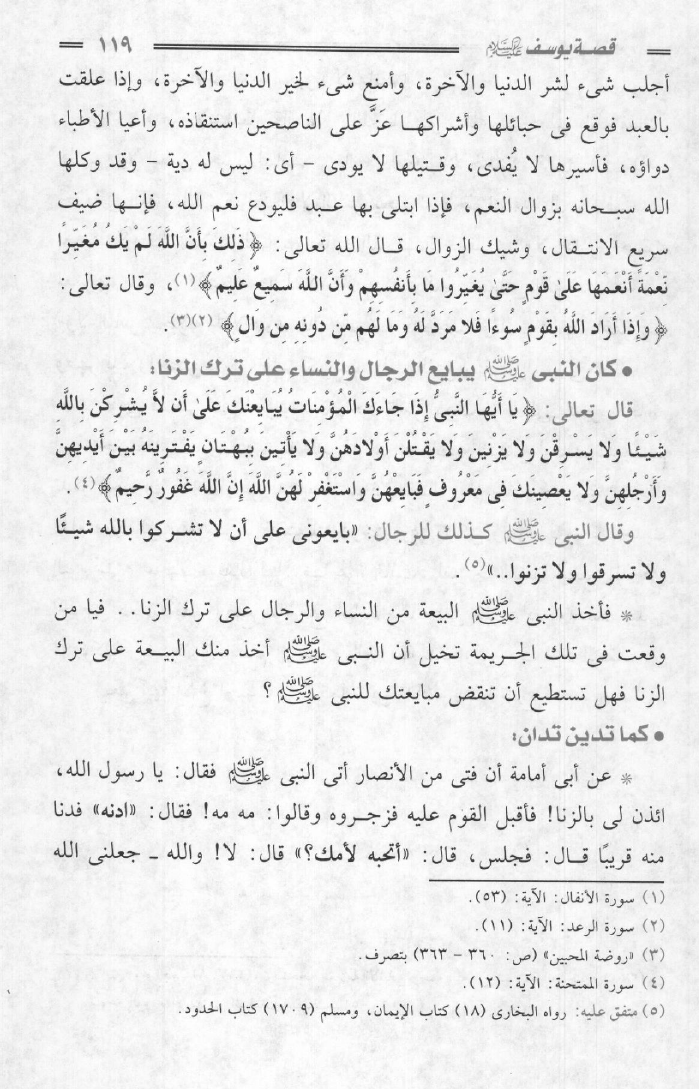 قصة يوسف عليه السلام ١١٩
أجلب شىء لشر الدنيا والآخرة، وأمنع شىء لخير الدنيا والآخرة، وإذا علقت
بالعبد فوقع فى حبائلها وأشراكها عَزَّ على الناصحين استنقاذه، وأعيا الأطباء
دواؤه، فأسيرها لا يُفدى، وقتيلها لا يودى - أى: ليس له دية - وقد وكلها
الله سبحانه بزوال النعم، فإذا ابتلى بها عبد فليودع نعم الله، فإنها ضيف
سريع الانتقال، وشيك الزوال، قال الله تعالى: ﴿ ذَلِكَ بِأَنَّ اللَّهَ لَمْ يَكُ مُغَيِّرًا
نِّعْمَةً أَنْعَمَهَا عَلَىٰ قَوْمٍ حَتَّىٰ يُغَيِّرُوا مَا بِأَنفُسِهِمْ وَأَنَّ اللَّهَ سَمِيعٌ عَلِيمٌ ﴾(١)، وقال تعالى:
﴿ وَإِذَا أَرَادَ اللَّهُ بِقَوْمٍ سُوءًا فَلا مَرَدَّ لَهُ وَمَا لَهُم مِّن دُونِهِ مِن وَالٍ ﴾ (٢)(٣).
• كان النبى ﷺ يبايع الرجال والنساء على ترك الزنا:
قال تعالى: ﴿ يَا أَيُّهَا النَّبِيُّ إِذَا جَاءَكَ الْمُؤْمِنَاتُ يُبَايِعْنَكَ عَلَىٰ أَن لاَّ يُشْرِكْنَ بِاللَّهِ
شَيْئًا وَلا يَسْرِقْنَ وَلا يَزْنِينَ وَلا يَقْتُلْنَ أَوْلادَهُنَّ وَلا يَأْتِينَ بِبُهْتَانٍ يَفْتَرِينَهُ بَيْنَ أَيْدِيهِنَّ
وَأَرْجُلِهِنَّ وَلا يَعْصِينَكَ فِى مَعْرُوفٍ فَبَايِعْهُنَّ وَاسْتَغْفِرْ لَهُنَّ اللَّهَ إِنَّ اللَّهَ غَفُورٌ رَّحِيمٌ ﴾(٤).
وقال النبى ﷺ كذلك للرجال: «بايعونى على أن لا تشركوا بالله شيئًا
ولا تسرقوا ولا تزنوا..»(٥).
* فأخذ النبى ﷺ البيعة من النساء والرجال على ترك الزنا.. فيا من
وقعت فى تلك الجريمة تخيل أن النبى ﷺ أخذ منك البيعة على ترك
الزنا فهل تستطيع أن تنقض مبايعتك للنبى ﷺ ؟
• كما تدين تدان:
* عن أبى أمامة أن فتى من الأنصار أتى النبى ﷺ فقال: يا رسول الله،
ائذن لى بالزنا! فأقبل القوم عليه فزجروه وقالوا: مه مه! فقال: «ادنه» فدنا
منه قريبًا قال: فجلس، قال: «أتحبه لأمك؟» قال: لا! والله ـ جعلنى الله
(١) سورة الأنفال: الآية: (٥٣).
(٢) سورة الرعد: الآية: (١١).
(٣) «روضة المحبين» (ص: ٣٦٠ - ٣٦٣) بتصرف.
(٤) سورة الممتحنة: الآية: (١٢).
(٥) متفق عليه: رواه البخارى (١٨) كتاب الإيمان، ومسلم (١٧٠٩) كتاب الحدود.